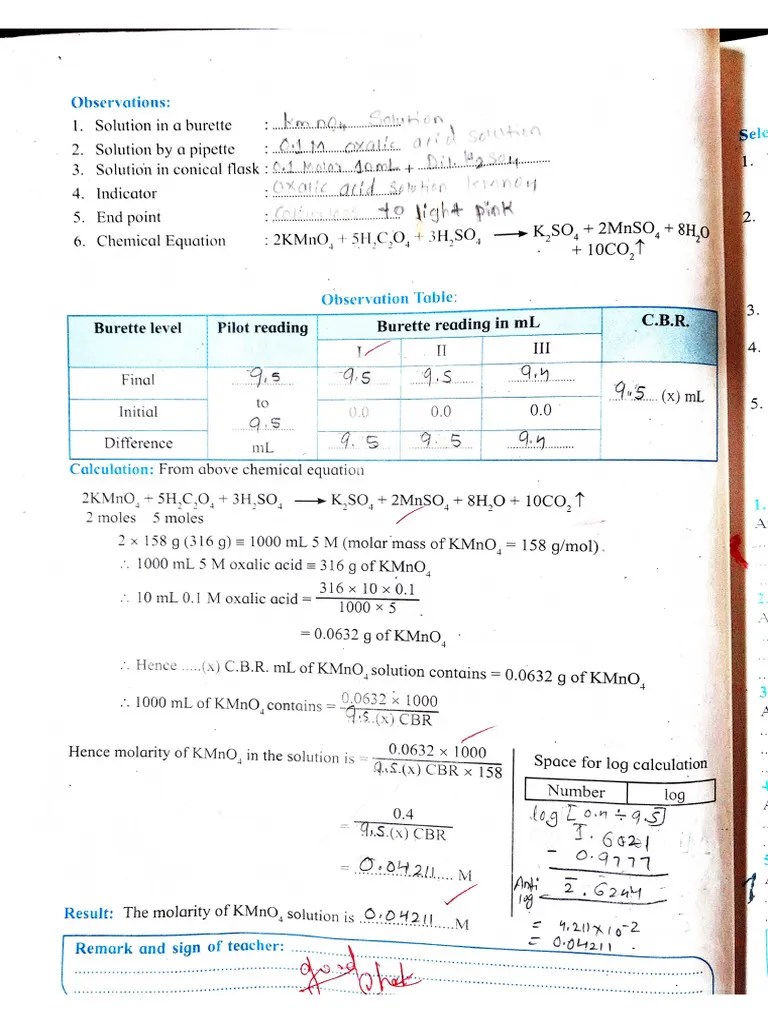 Observations:
1. Solution in a burette : KmnO4 Solution
2. Solution by a pipette : 0.1 M oxalic acid solution
3. Solution in conical flask : 0.1 Molar 10mL + Dil. H2SO4
4. Indicator : Oxalic acid solution
5. End point : Colourless to light pink
6. Chemical Equation : 2KMnO4 + 5H2C2O4 + 3H2SO4 ⟶ K2SO4 + 2MnSO4 + 8H2O
+ 10CO2↑
Observation Table:
Burette level Pilot reading Burette reading in mL C.B.R.
I II III
Final 9.5 9.5 9.5 9.4
to 9.5 (x) mL
Initial 9.5 0.0 0.0 0.0
Difference mL 9.5 9.5 9.4
Calculation: From above chemical equation
2KMnO4 + 5H2C2O4 + 3H2SO4 ⟶ K2SO4 + 2MnSO4 + 8H2O + 10CO2↑
2 moles 5 moles
2 × 158 g (316 g) ≡ 1000 mL 5 M (molar mass of KMnO4 = 158 g/mol).
∴ 1000 mL 5 M oxalic acid ≡ 316 g of KMnO4
∴ 10 mL 0.1 M oxalic acid = 316 × 10 × 0.1
1000 × 5
= 0.0632 g of KMnO4
∴ Hence .....(x) C.B.R. mL of KMnO4 solution contains = 0.0632 g of KMnO4
∴ 1000 mL of KMnO4 contains = 0.0632 × 1000
9.5.(x) CBR
Hence molarity of KMnO4 in the solution is = 0.0632 × 1000
9.5.(x) CBR × 158
= 0.4
9.5.(x) CBR
= 0.04211 M
Space for log calculation
Number log
log [0.4 ÷ 9.5]
1̄.6021
- 0.9777
Anti log 2̄.6244
= 4.211×10-2
= 0.04211
Result: The molarity of KMnO4 solution is 0.04211 M
Remark and sign of teacher:
good
Sele
1.
2.
3.
4.
5.
1.
2.
3